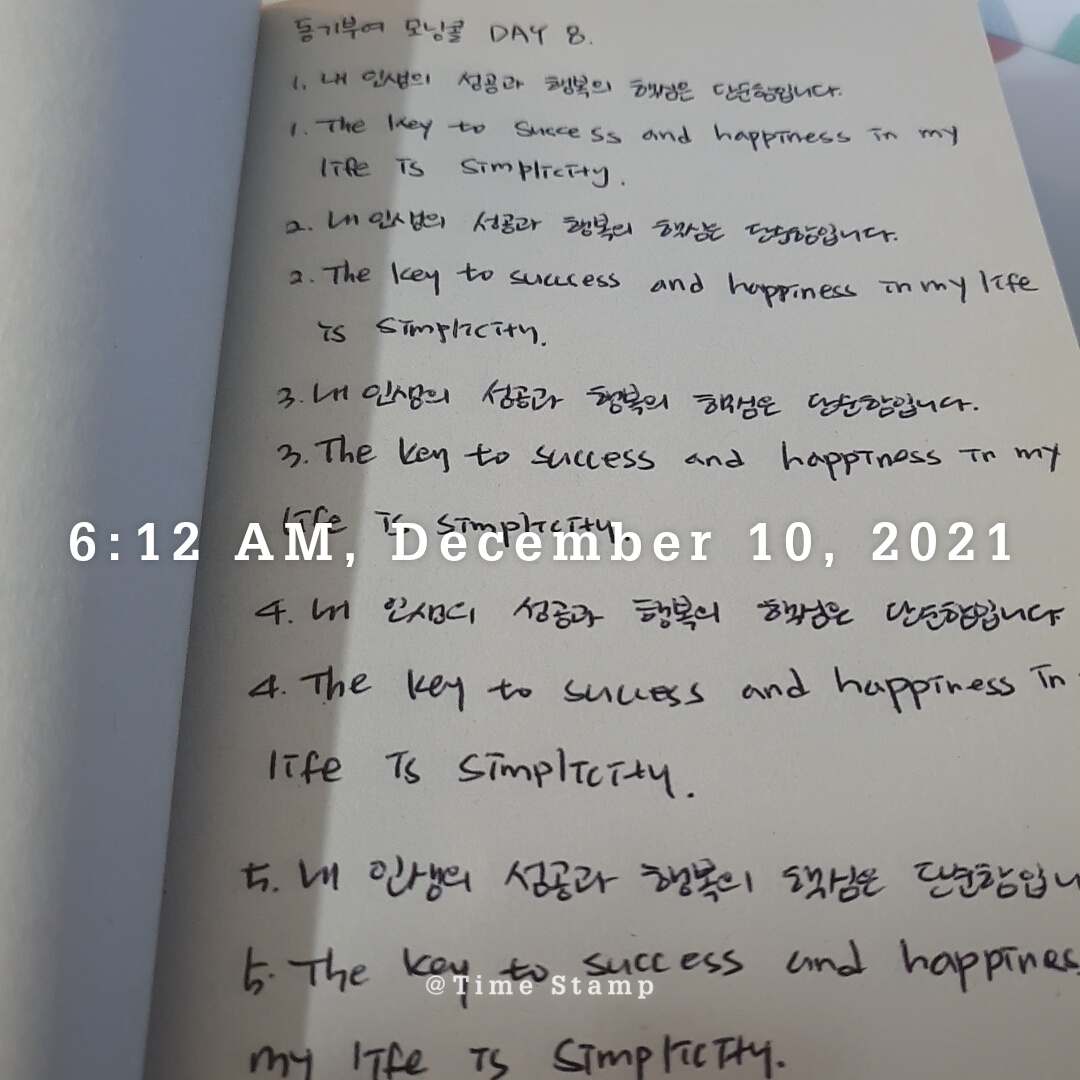 동기부여 모닝콜 DAY 8.
1. 내 인생의 성공과 행복의 핵심은 단순함입니다.
1. The key to success and happiness in my
life is simplicity.
2. 내 인생의 성공과 행복의 핵심은 단순함입니다.
2. The key to success and happiness in my life
is simplicity.
3. 내 인생의 성공과 행복의 핵심은 단순함입니다.
3. The key to success and happiness in my
life is simplicity.
6:12 AM, December 10, 2021
4. 내 인생의 성공과 행복의 핵심은 단순함입니다
4. The key to success and happiness in
life is simplicity.
5. 내 인생의 성공과 행복의 핵심은 단순함입니
5. The key to success and happines
@Time Stamp
my life is simplicity.